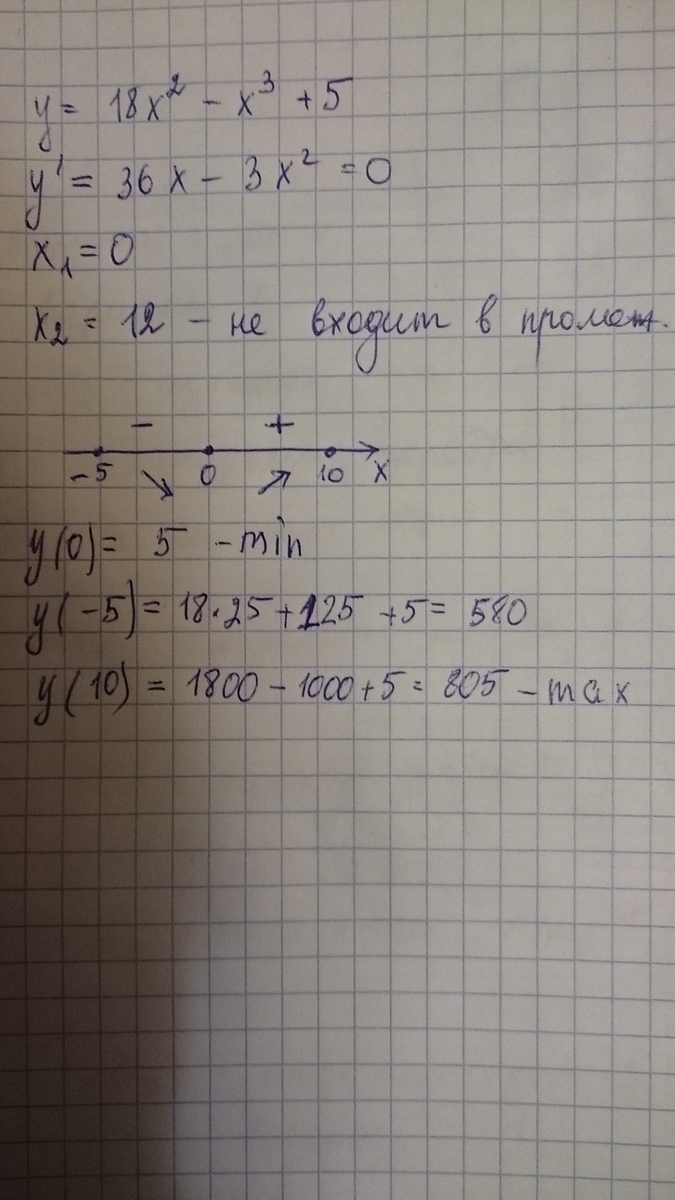 y = 18x² - x³ + 5
y' = 36x - 3x² = 0
x₁ = 0
x₂ = 12 - не входит в промеж.
- +
-5 0 10 x
y(0) = 5 - min
y(-5) = 18·25 + 125 + 5 = 580
y(10) = 1800 - 1000 + 5 = 805 - max